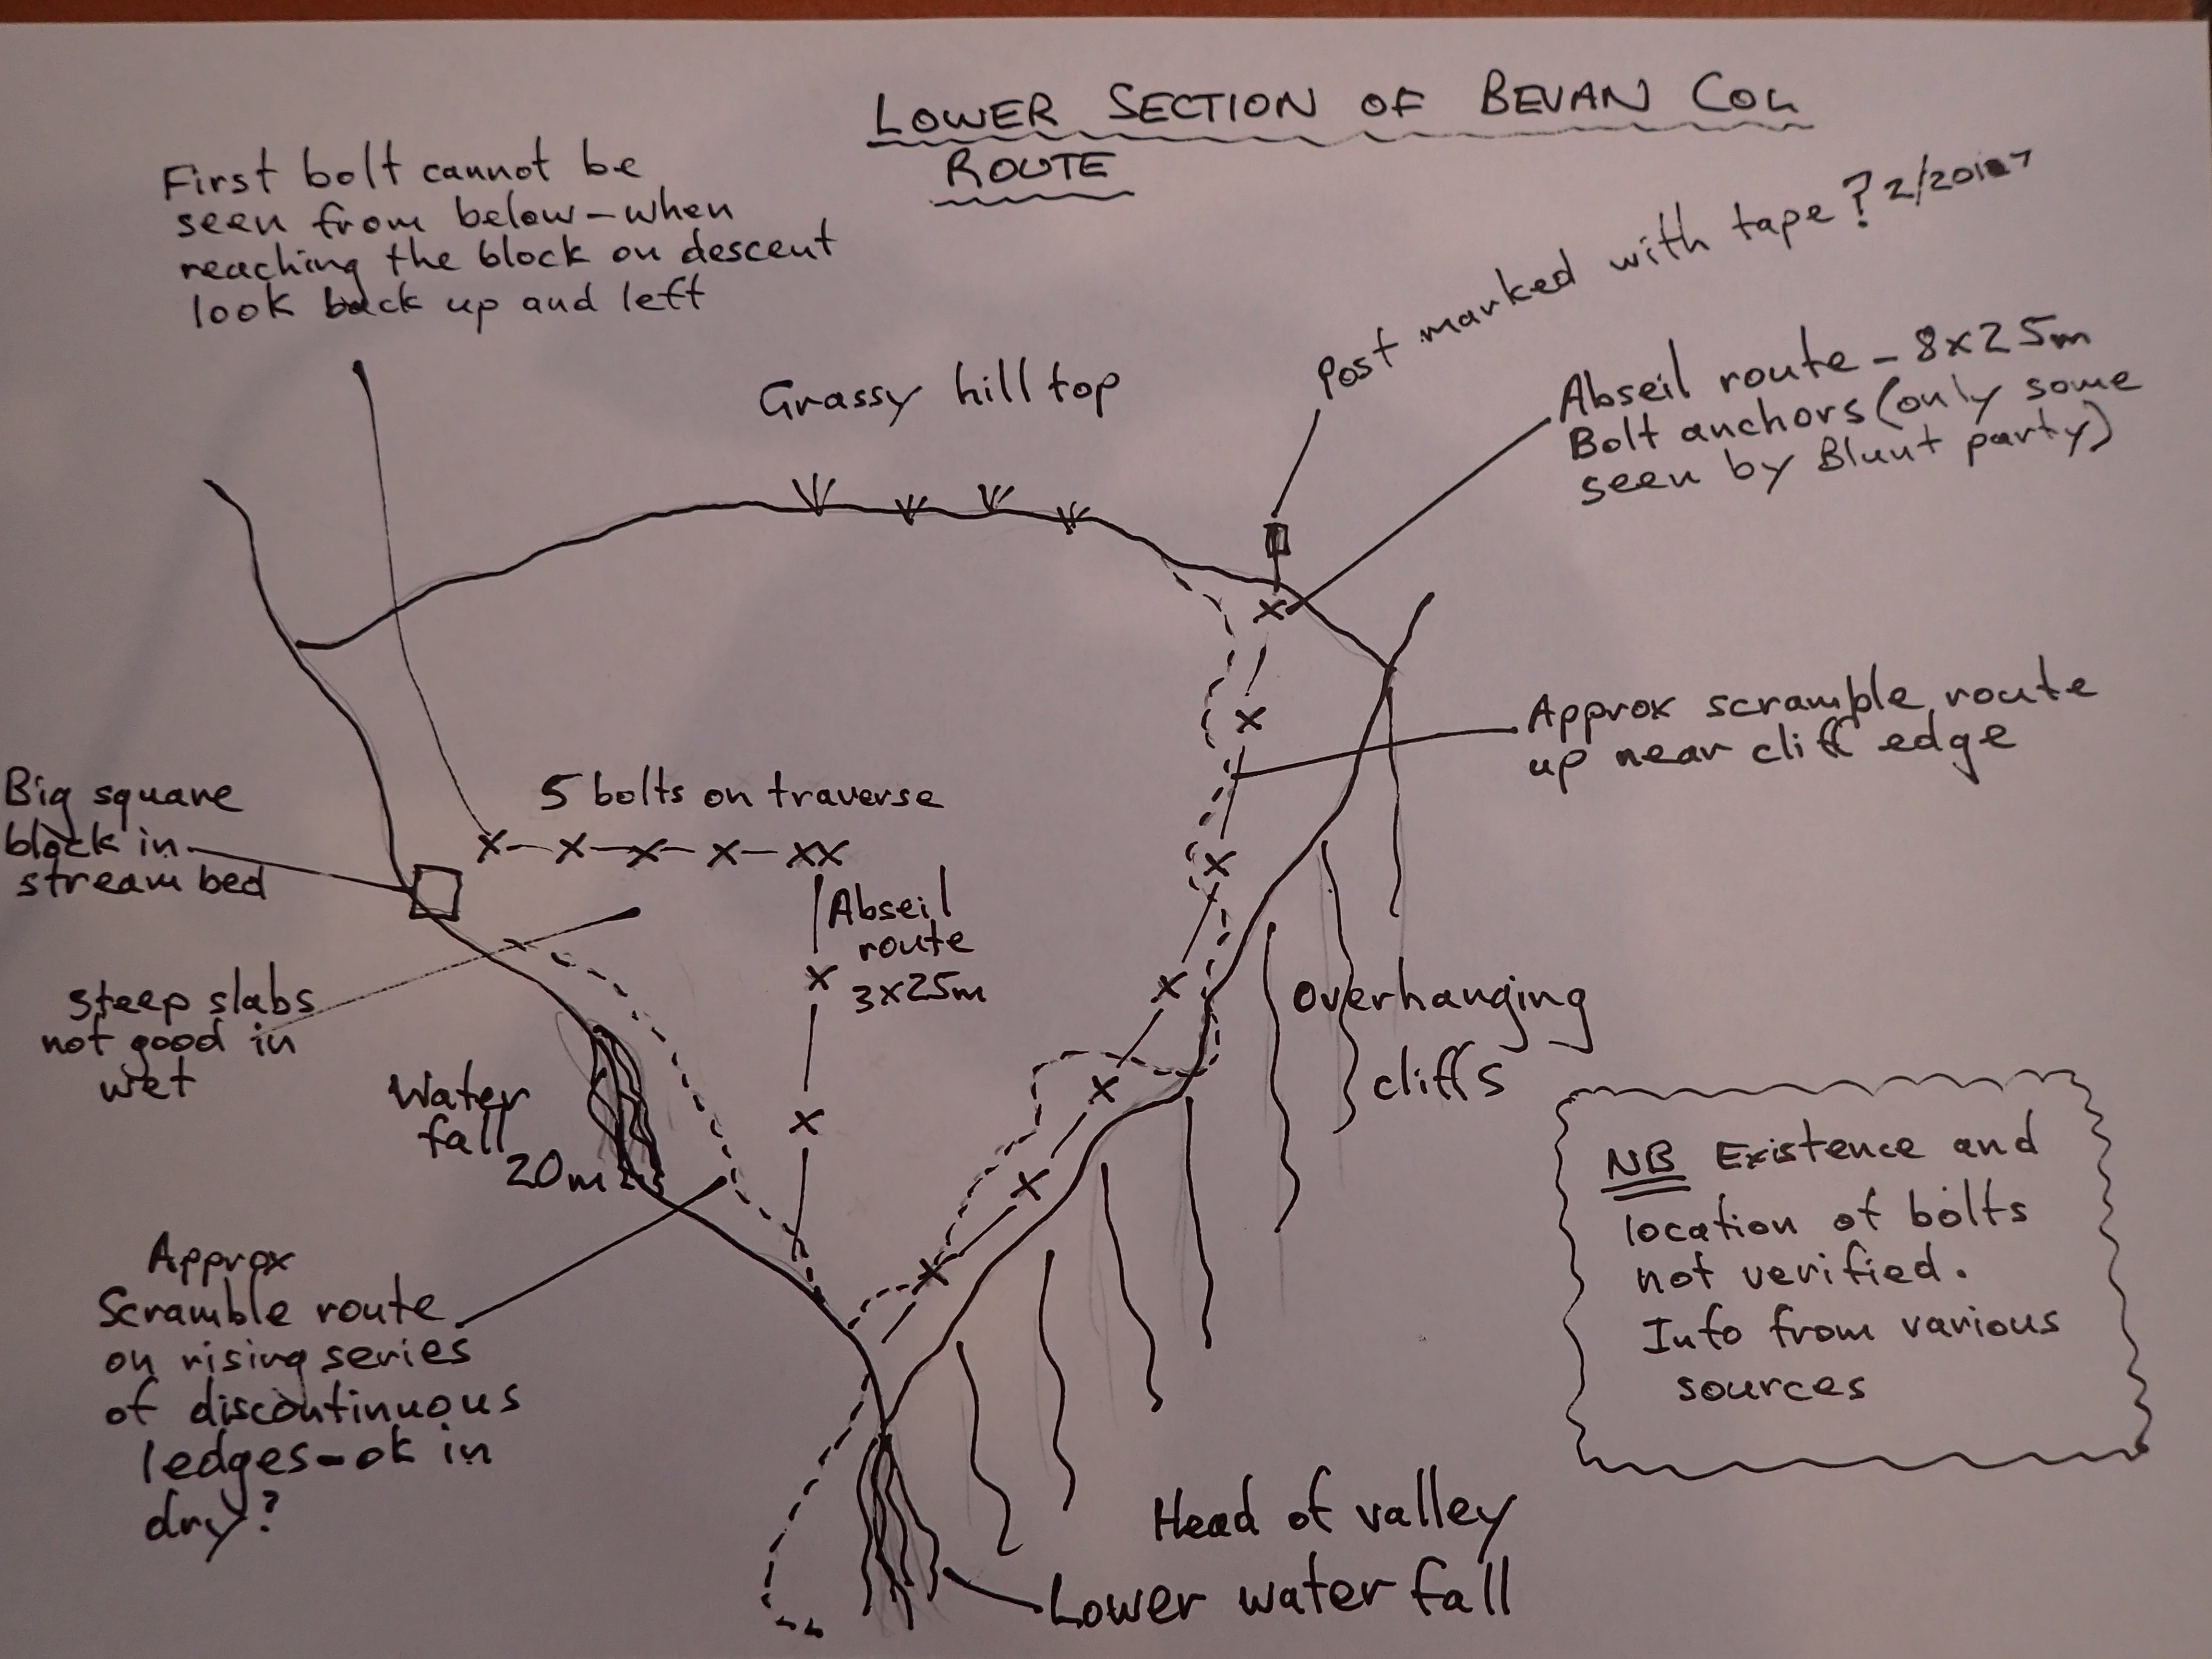 LOWER SECTION OF BEVAN COL
ROUTE
First bolt cannot be
seen from below-when
reaching the block on descent
look back up and left
Post marked with tape?
Grassy hill top
Abseil route - 8x25m
Bolt anchors (only some
seen by Blunt party)
Approx scramble route
up near cliff edge
Big square
block in
stream bed
5 bolts on traverse
Abseil
route
3x25m
Steep slabs
not good in
wet
Water
fall
20m
Overhanging
cliffs
NB Existence and
location of bolts
not verified.
Info from various
sources
Approx
Scramble route
on rising series
of discontinuous
ledges-ok in
dry?
Head of valley
Lower water fall